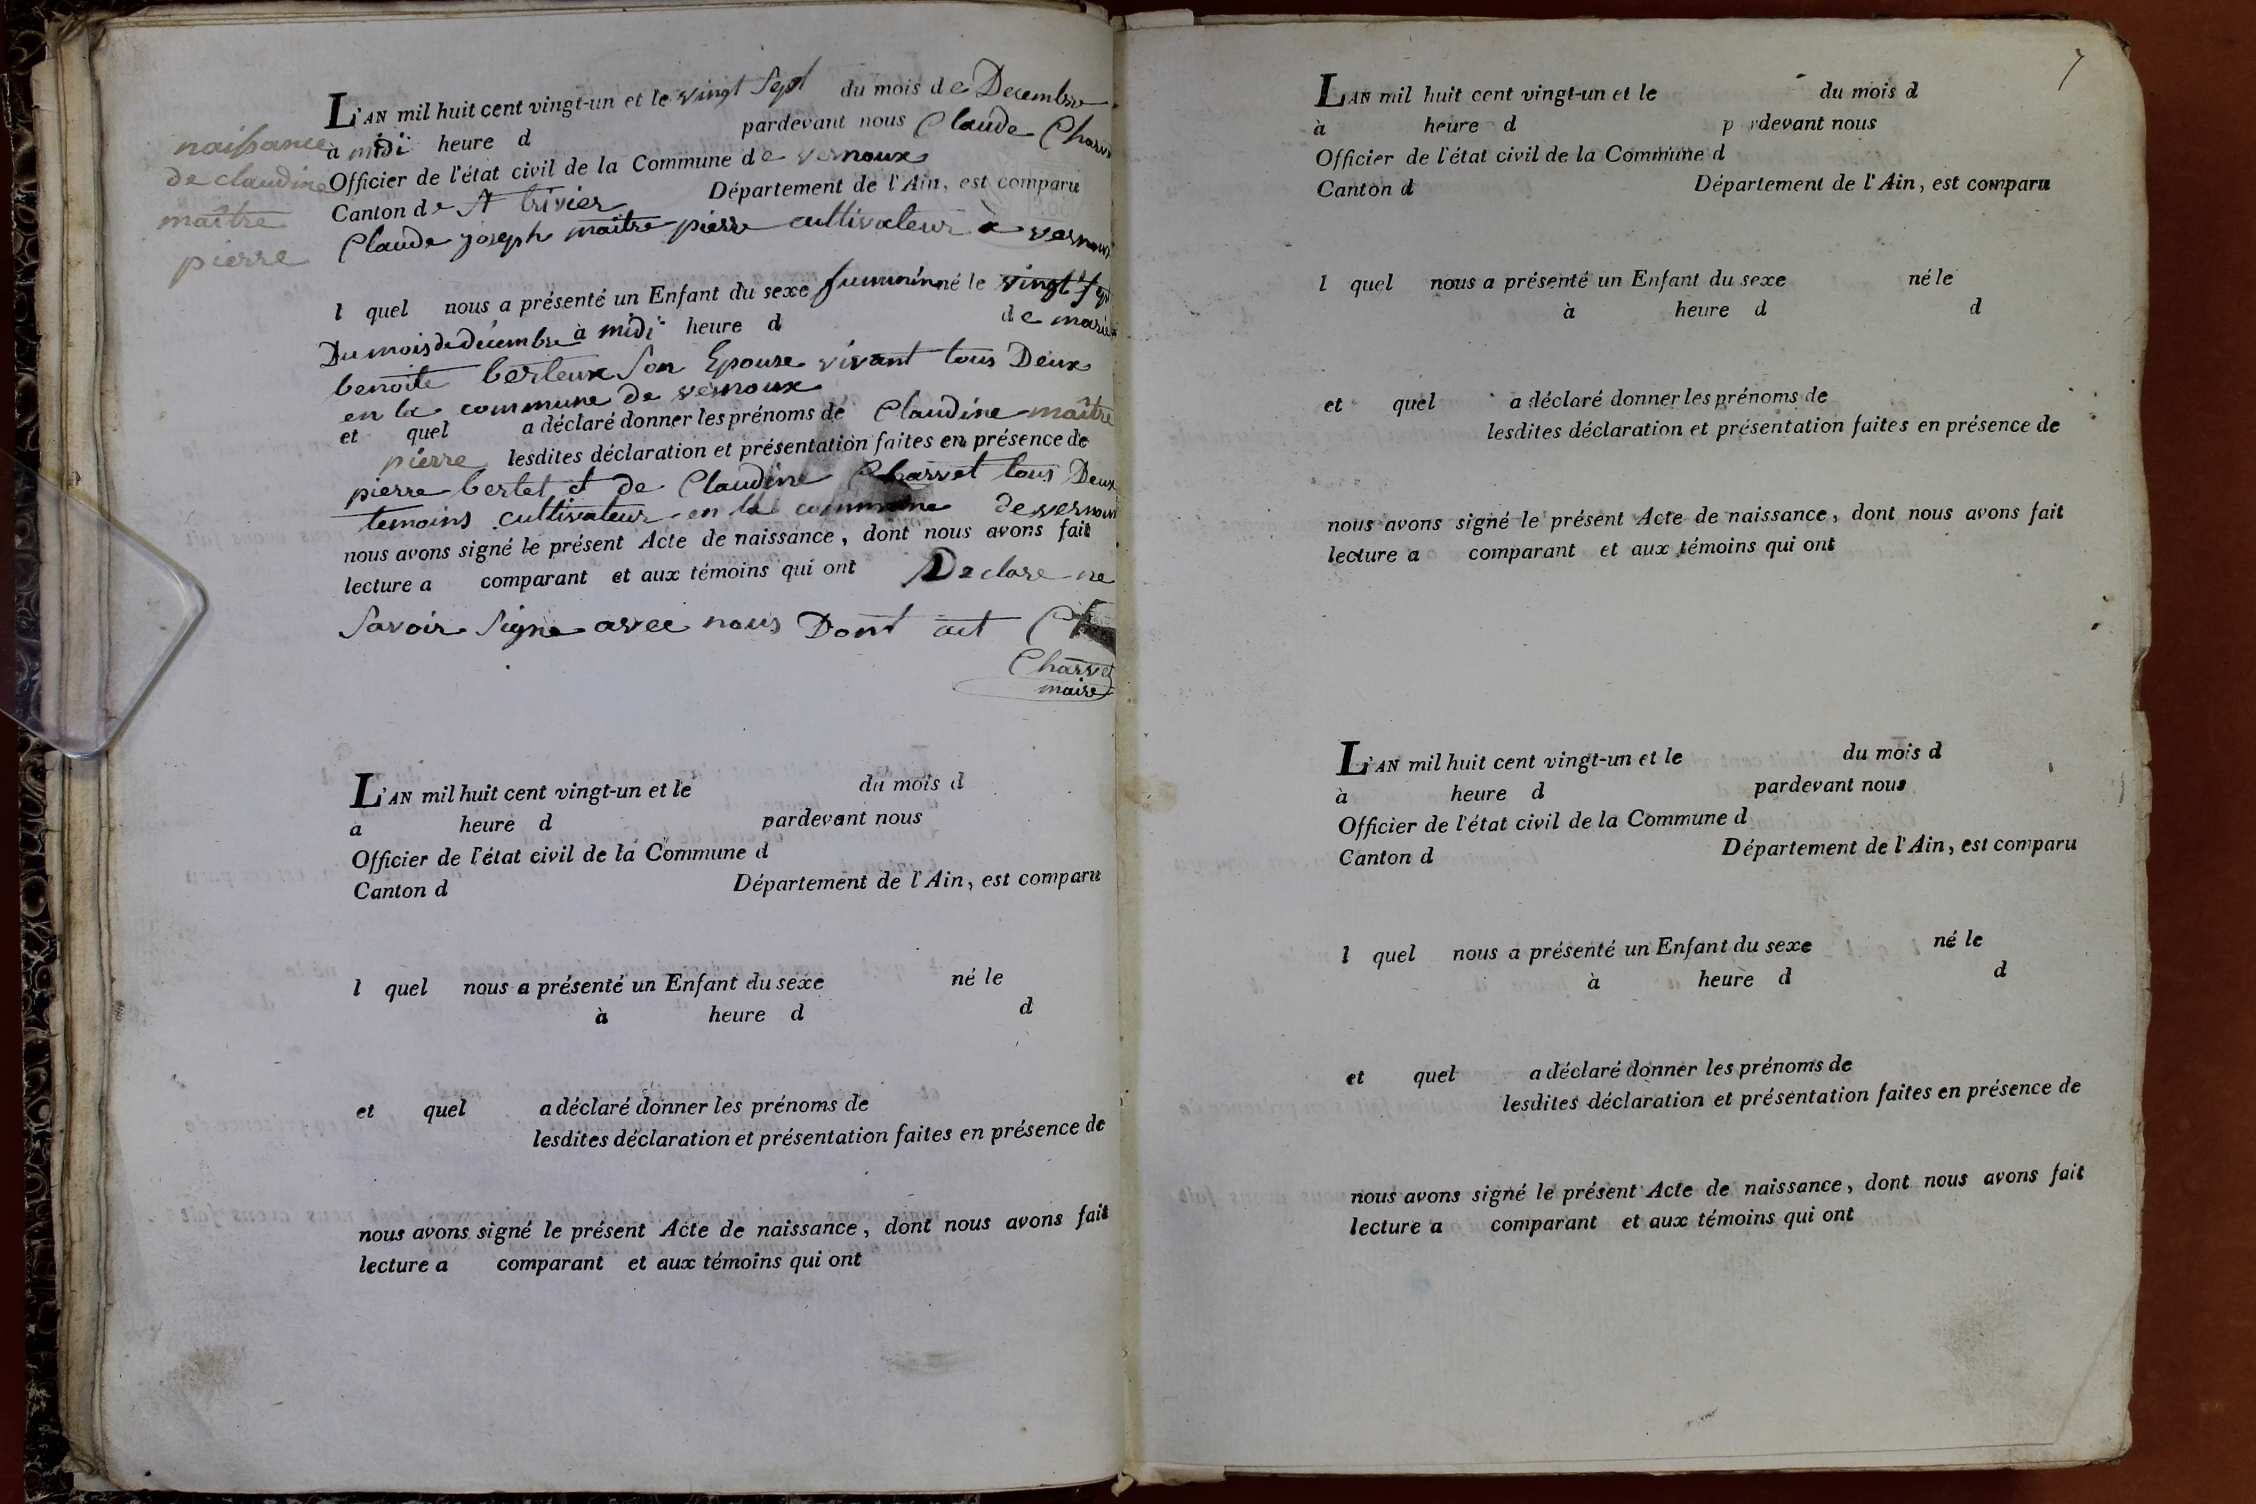 naissance
de claudine
maître
pierre
L'AN mil huit cent vingt-un et le vingt Sept du mois de Decembre
à midi heure d pardevant nous Claude Charv
Officier de l'état civil de la Commune de vernoux
Canton de St trivier Département de l'Ain, est comparu
Claude joseph maître pierre cultivateur à vernoux
l quel nous a présenté un Enfant du sexe né le vingt Sept
Du mois de décembre à midi heure d de marie
benoite berteux Son Epouse vivant tous Deux
en la commune de vernoux
et quel a déclaré donner les prénoms de Claudine maître
pierre lesdites déclaration et présentation faites en présence de
pierre bertet et de Claudine Charvet tous Deux
temoins cultivateur en la commune de vernoux
nous avons signé le présent Acte de naissance, dont nous avons fait
lecture a comparant et aux témoins qui ont Declare ne
Savoir Signe avec nous Dont act
Charvet
maire
L'AN mil huit cent vingt-un et le du mois d
a heure d pardevant nous
Officier de l'état civil de la Commune d
Canton d Département de l'Ain, est comparu
l quel nous a présenté un Enfant du sexe né le
à heure d d
et quel a déclaré donner les prénoms de
lesdites déclaration et présentation faites en présence de
nous avons signé le présent Acte de naissance, dont nous avons fait
lecture a comparant et aux témoins qui ont
7
L'AN mil huit cent vingt-un et le du mois d
à heure d p rdevant nous
Officier de l'état civil de la Commune d
Canton d Département de l'Ain, est comparu
l quel nous a présenté un Enfant du sexe né le
à heure d d
et quel a déclaré donner les prénoms de
lesdites déclaration et présentation faites en présence de
nous avons signé le présent Acte de naissance, dont nous avons fait
lecture a comparant et aux témoins qui ont
L'AN mil huit cent vingt-un et le du mois d
à heure d pardevant nous
Officier de l'état civil de la Commune d
Canton d Département de l'Ain, est comparu
l quel nous a présenté un Enfant du sexe né le
à heure d d
et quel a déclaré donner les prénoms de
lesdites déclaration et présentation faites en présence de
nous avons signé le présent Acte de naissance, dont nous avons fait
lecture a comparant et aux témoins qui ont